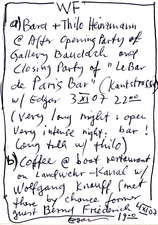 WF
a) Bara + Thilo Heinzmann
@ After Opening Party of
Gallery Baudach and
Closing Party of "Le Bar
de Paris Bar" (Kantstrasse)
w/ Edgar 3 XI 07 22 00
(very long night: open
very intense night: bar!
long talk w/ Thilo)
b) Coffee @ boat restaurant
on Landwehr-Kanal w/
Wolfgang Knauff (met
there by chance former
guest Bernd Friederich)
4 XI 07
19 00